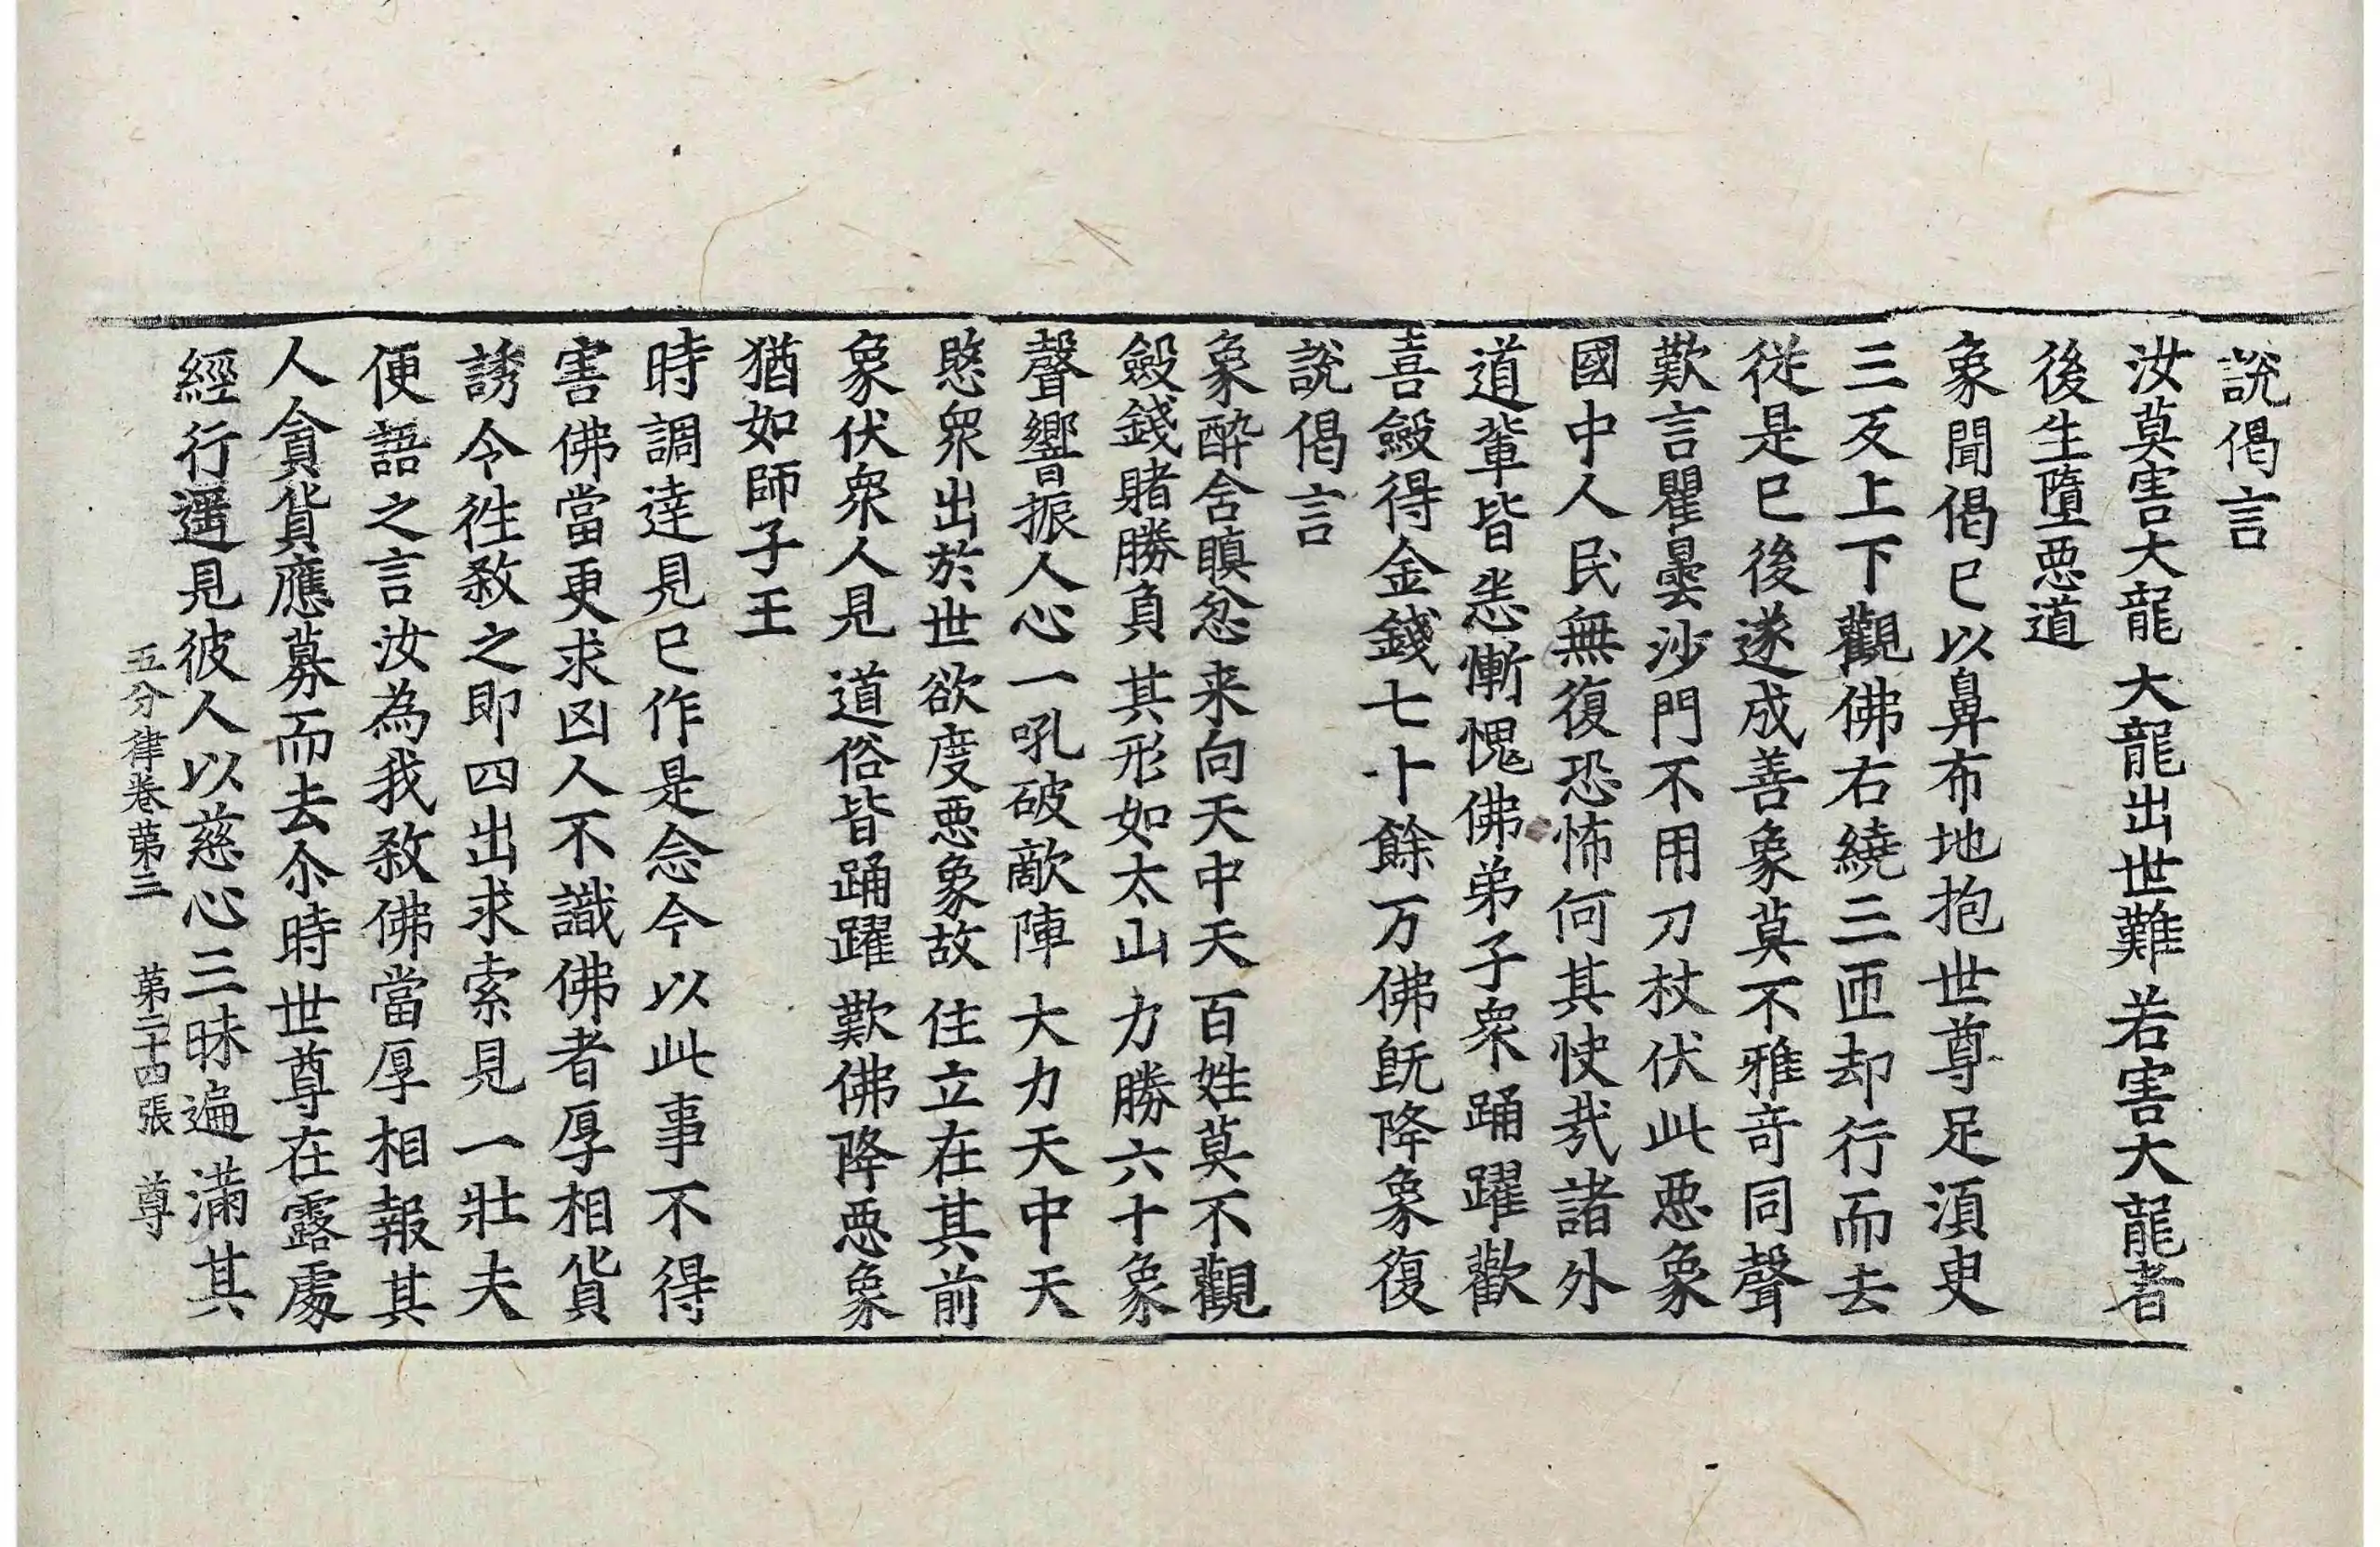 說偈言
汝莫害大龍 大龍出世難 若害大龍者
後生墮惡道
象聞偈已以鼻布地抱世尊足湏臾
三反上下觀佛右繞三匝却行而去
從是已後遂成善象莫不雅奇同聲
歎言瞿曇沙門不用刀杖伏此惡象
國中人民無復恐怖何其快㢤諸外
道輩皆悉慚愧佛弟子衆踊躍歡
喜斂得金錢七十餘万佛旣降象復
說偈言
象醉含瞋忿 来向天中天 百姓莫不觀
斂錢賭勝負 其形如太山 力勝六十象
聲響振人心 一吼破敵陣 大力天中天
愍衆出於世 欲度惡象故 住立在其前
象伏衆人見 道俗皆踊躍 歎佛降惡象
猶如師子王
時調達見已作是念今以此事不得
害佛當更求凶人不識佛者厚相貨
誘令往煞之即四出求索見一壯夫
便語之言汝為我煞佛當厚相報其
人貪貨應募而去尒時世尊在露處
經行遥見彼人以慈心三昧遍滿其
五分律卷第三 第二十四張 尊